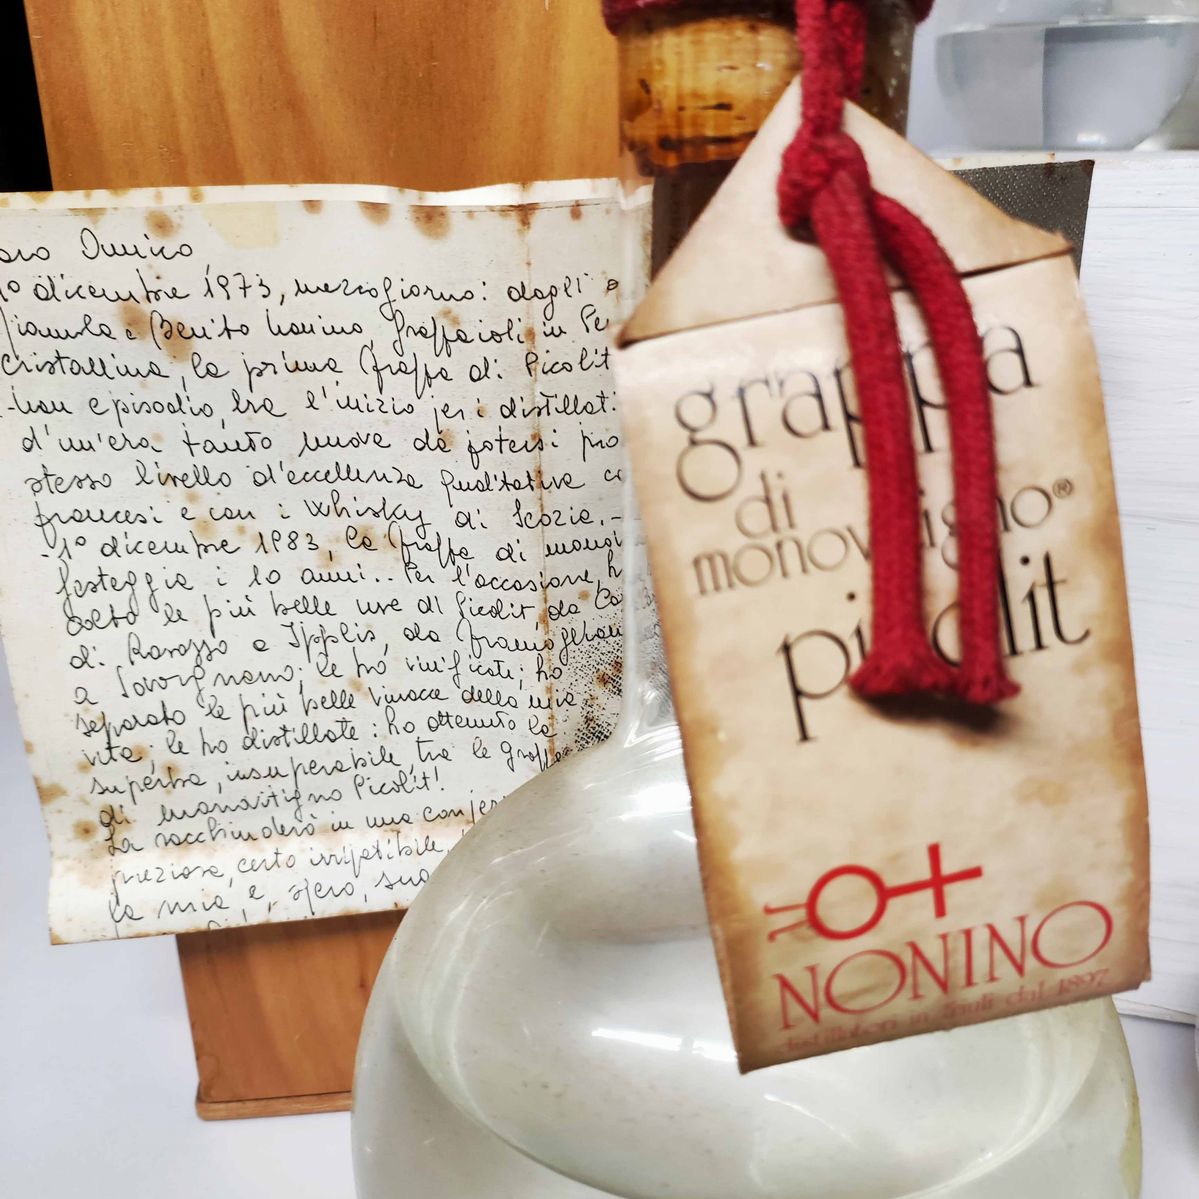 Amico
1° dicembre 1973, mezzogiorno: dagli a
Giannola e Benito Nonino, grappaioli in Pe
cristallina, la prima Grappa di Picolit
episodio, ma l'inizio per i distillati
d'un'era tanto nuova da potersi pro
stesso livello d'eccellenza qualitativa co
francesi e con i Whisky di Scozia.-
-1° dicembre 1983, la Grappa di monovi
festeggia i 10 anni.. Per l'occasione, h
colto le più belle uve di Picolit da Co
di Rosazzo e Ipplis, da
a Savorgnano; le ho vinificate; ho
separato le più belle vinacce della mia
vita; le ho distillate: ho ottenuto la
superba, insuperabile, tra le Grappe
di monovitigno Picolit!
La racchiuderò in una
preziosa, certo irripetibile,
la mia e, spero, sua
grappa
di
monovitigno®
picolit
NONINO
distillatori in Friuli dal 1897